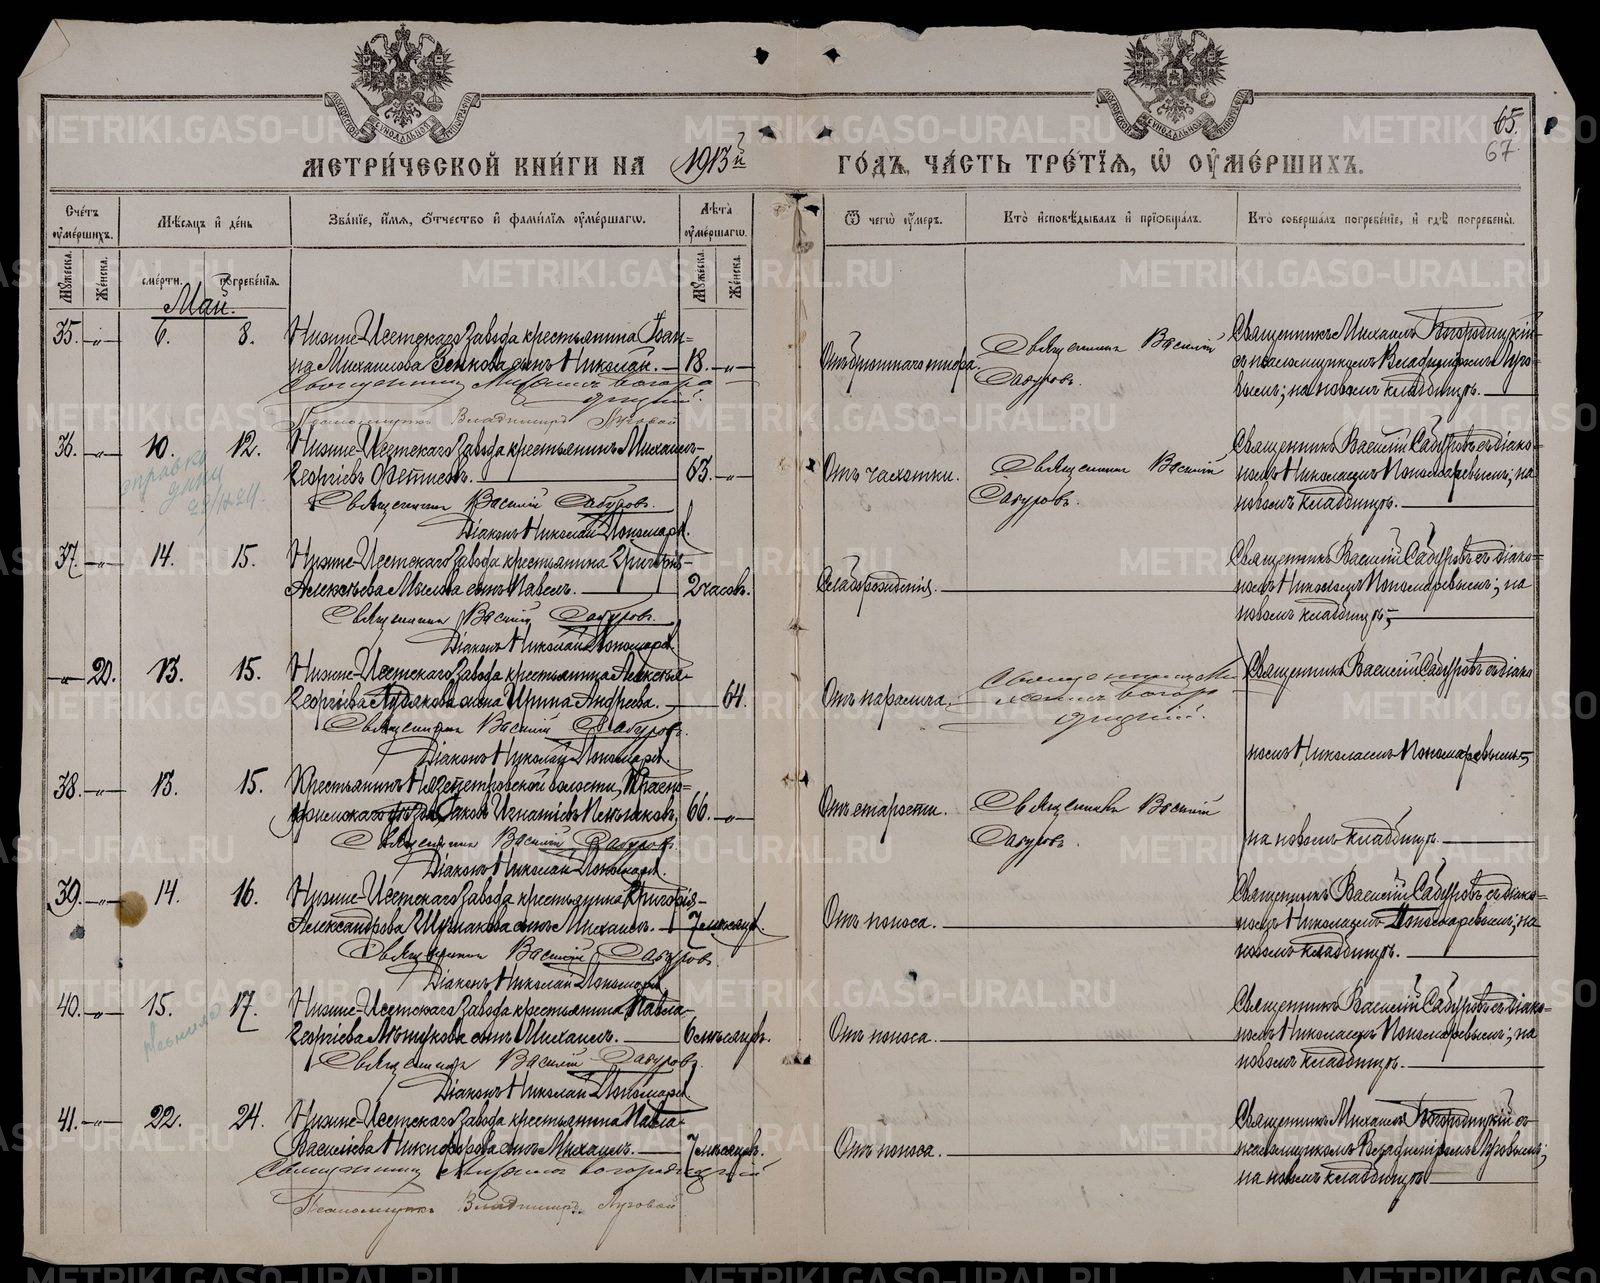 65.
67.
МЕТРИ́ЧЕСКОЙ КНИ́ГИ НА 1913й ГО́ДЪ, ЧА́СТЬ ТРЕ́ТІЯ, Ѡ ОУМЕ́РШИХЪ.
Сче́тъ оуме́ршихъ.
Му́жеска.
Же́нска.
Мѣ́сяцъ и де́нь
сме́рти.
погребе́нія.
Зва́ніе, и́мя, о́тчество и фами́лія оуме́ршагѡ.
Лѣ́та оуме́ршагѡ.
Му́жеска.
Же́нска.
Ѿ чегѡ̀ оу́меръ.
Кто̀ исповѣ́дывалъ и пріѡбща́лъ.
Кто̀ соверша́лъ погребе́ніе, и гдѣ̀ погребены̀.
Май.
35. -"- 6. 8. Нижне-Исетскаго завода крестьянина Іоан-
на Михаилова Зенкова сынъ Николай. 18. -"-
Священникъ Михаилъ Богоро-
дицкій.
Псаломщикъ Владимиръ Луговой
Отъ брюшного тифа.
Священникъ Василій
Сабуровъ.
Священникъ Михаилъ Богородицкій
съ псаломщикомъ Владимиромъ Луго-
вымъ; на новомъ кладбищѣ.
36. -"- 10. 12. Нижне-Исетскаго завода крестьянинъ Михаилъ
Георгіевъ Фетисовъ. 63. -"-
справка
дана
Священникъ Василій Сабуровъ.
Діаконъ Николай Пономарев.
Отъ чахотки.
Священникъ Василій
Сабуровъ.
Священникъ Василій Сабуровъ съ діако-
номъ Николаемъ Пономаревымъ; на
новомъ кладбищѣ.
37. -"- 14. 15. Нижне-Исетскаго завода крестьянина Григорія
Алексѣева Мылова сынъ Павелъ. 2 часовъ.
Священникъ Василій Сабуровъ.
Діаконъ Николай Пономарев.
Слаборожденія.
Священникъ Василій Сабуровъ съ діако-
номъ Николаемъ Пономаревымъ; на
новомъ кладбищѣ;
-"- 20. 13. 15. Нижне-Исетскаго завода крестьянина Алексѣя
Георгіева жена Ирина Андреева. 64.
Священникъ Василій Сабуровъ.
Діаконъ Николай Пономарев.
Отъ паралича.
Священникъ Ми-
хаилъ Богоро-
дицкій.
Священникъ Василій Сабуровъ съ діако
номъ Николаемъ Пономаревымъ;
38. -"- 13. 15. Крестьянинъ Нязепетровской волости, Красно-
уфимскаго уѣзда, Іаковъ Игнатіевъ 66. -"-
Священникъ Василій Сабуровъ.
Діаконъ Николай Пономарев.
Отъ старости.
Священникъ Василій
Сабуровъ.
на новомъ кладбищѣ.
39. -"- 14. 16. Нижне-Исетскаго завода крестьянина Григорія
Александрова сынъ Михаилъ. 7 месяцев.
Священникъ Василій Сабуровъ.
Діаконъ Николай Пономарев
Отъ поноса.
Священникъ Василій Сабуровъ съ діако-
номъ Николаемъ Пономаревымъ; на
новомъ кладбищѣ.
40. -"- 15. 17. Нижне-Исетскаго завода крестьянина Павла
Георгіева сынъ Михаилъ. 6 мѣсяцевъ.
Священникъ Василій Сабуровъ.
Діаконъ Николай Пономарев.
Отъ поноса.
Священникъ Василій Сабуровъ съ діако-
номъ Николаемъ Пономаревымъ; на
новомъ кладбищѣ.
41. -"- 22. 24. Нижне-Исетскаго завода крестьянина Павла
Василіева Никифорова сынъ Михаилъ. 7 месяцевъ.
Священникъ Михаилъ Богородицкій
Псаломщикъ Владимиръ Луговой
Отъ поноса.
Священникъ Михаилъ Богородицкій съ
псаломщикомъ Владимиромъ Луговымъ;
на новомъ кладбищѣ
METRIKI.GASO-URAL.RU